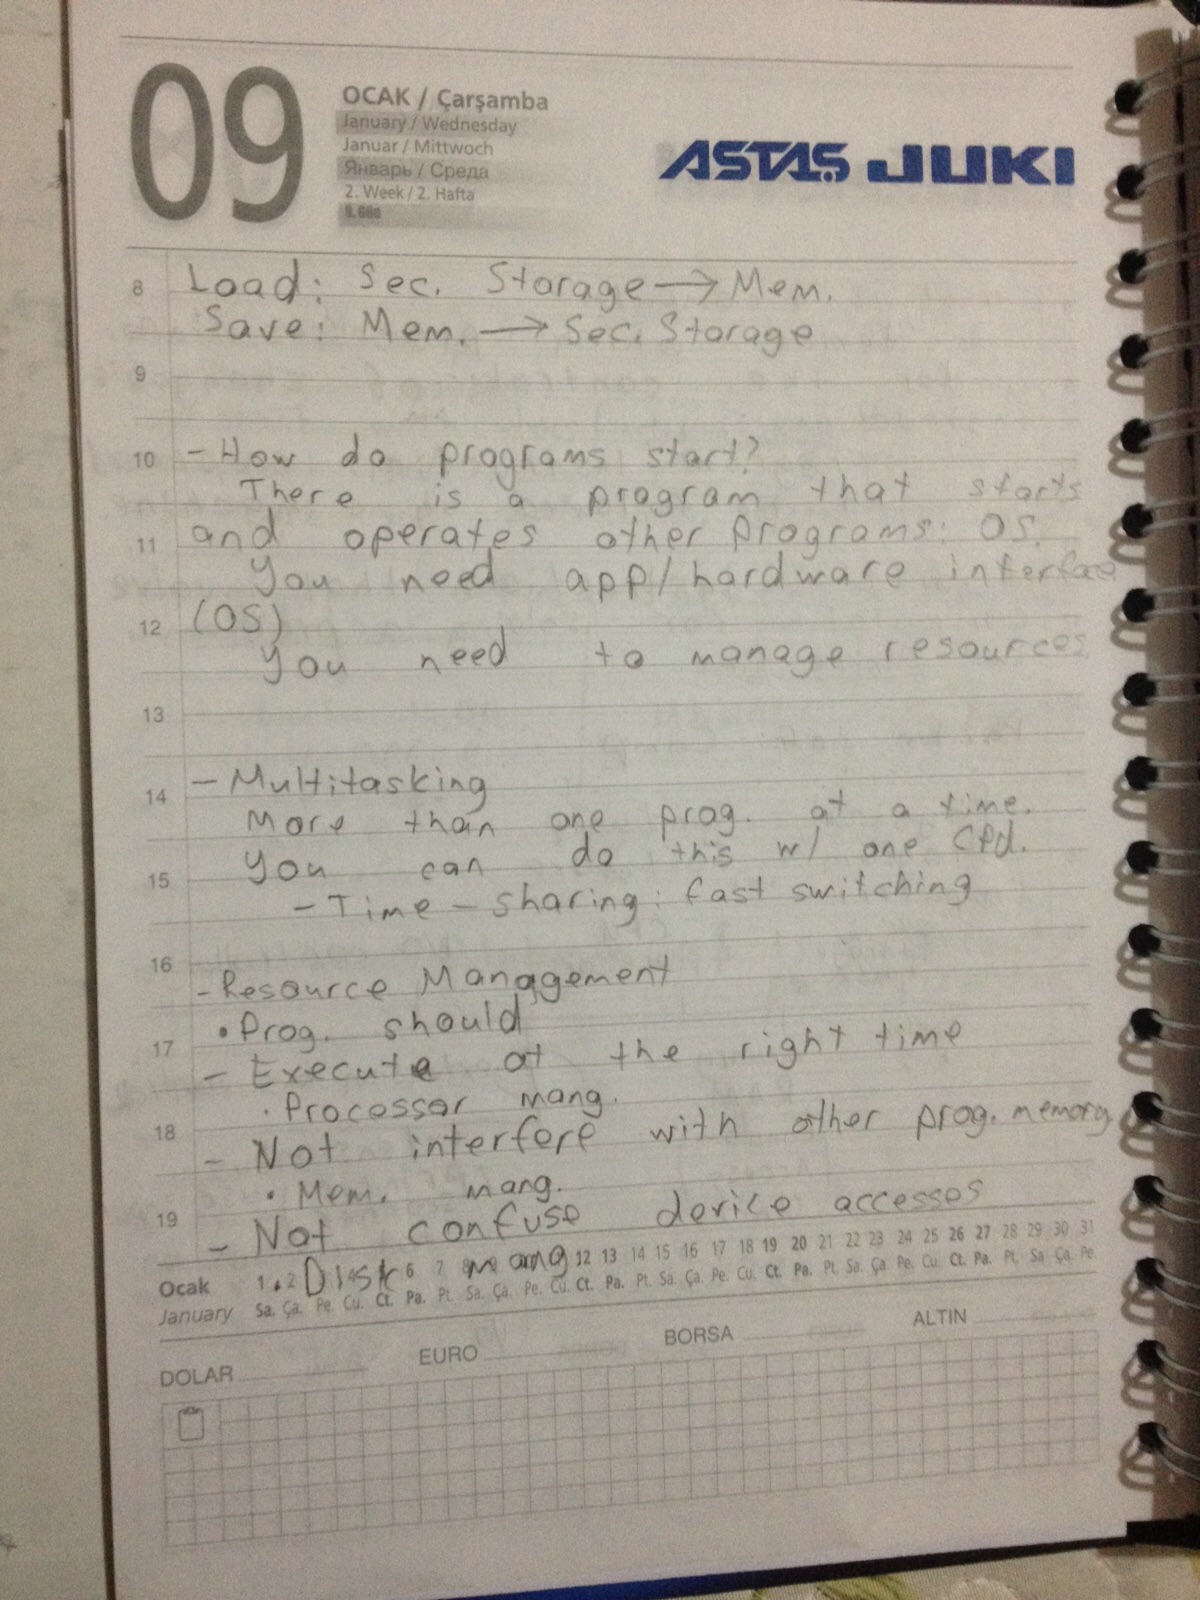 09
OCAK / Çarşamba
January / Wednesday
Januar / Mittwoch
Январь / Среда
2. Week / 2. Hafta
9. Gün
ASTAŞ JUKI
8 Load: Sec. Storage → Mem.
Save: Mem. → Sec. Storage
9
10 - How do programs start?
There is a program that starts
11 and operates other programs: OS.
You need app/hardware interface
12 (OS)
You need to manage resources
13
14 - Multitasking
More than one prog. at a time.
15 You can do this w/ one CPU.
- Time - sharing: fast switching
16
- Resource Management
• Prog. should
17 - Execute at the right time
• Processor mang.
18 - Not interfere with other prog. memory
• Mem. mang.
19 - Not confuse device accesses
• Disk mang
Ocak 1 2 6 7 8 12 13 14 15 16 17 18 19 20 21 22 23 24 25 26 27 28 29 30 31
January Sa. Ça. Pe. Cu. Ct. Pa. Pt. Sa. Ça. Pe. Cu. Ct. Pa. Pt. Sa. Ça. Pe. Cu. Ct. Pa. Pt. Sa. Ça Pe. Cu. Ct. Pa. Pt. Sa Ça. Pe.
DOLAR EURO BORSA ALTIN